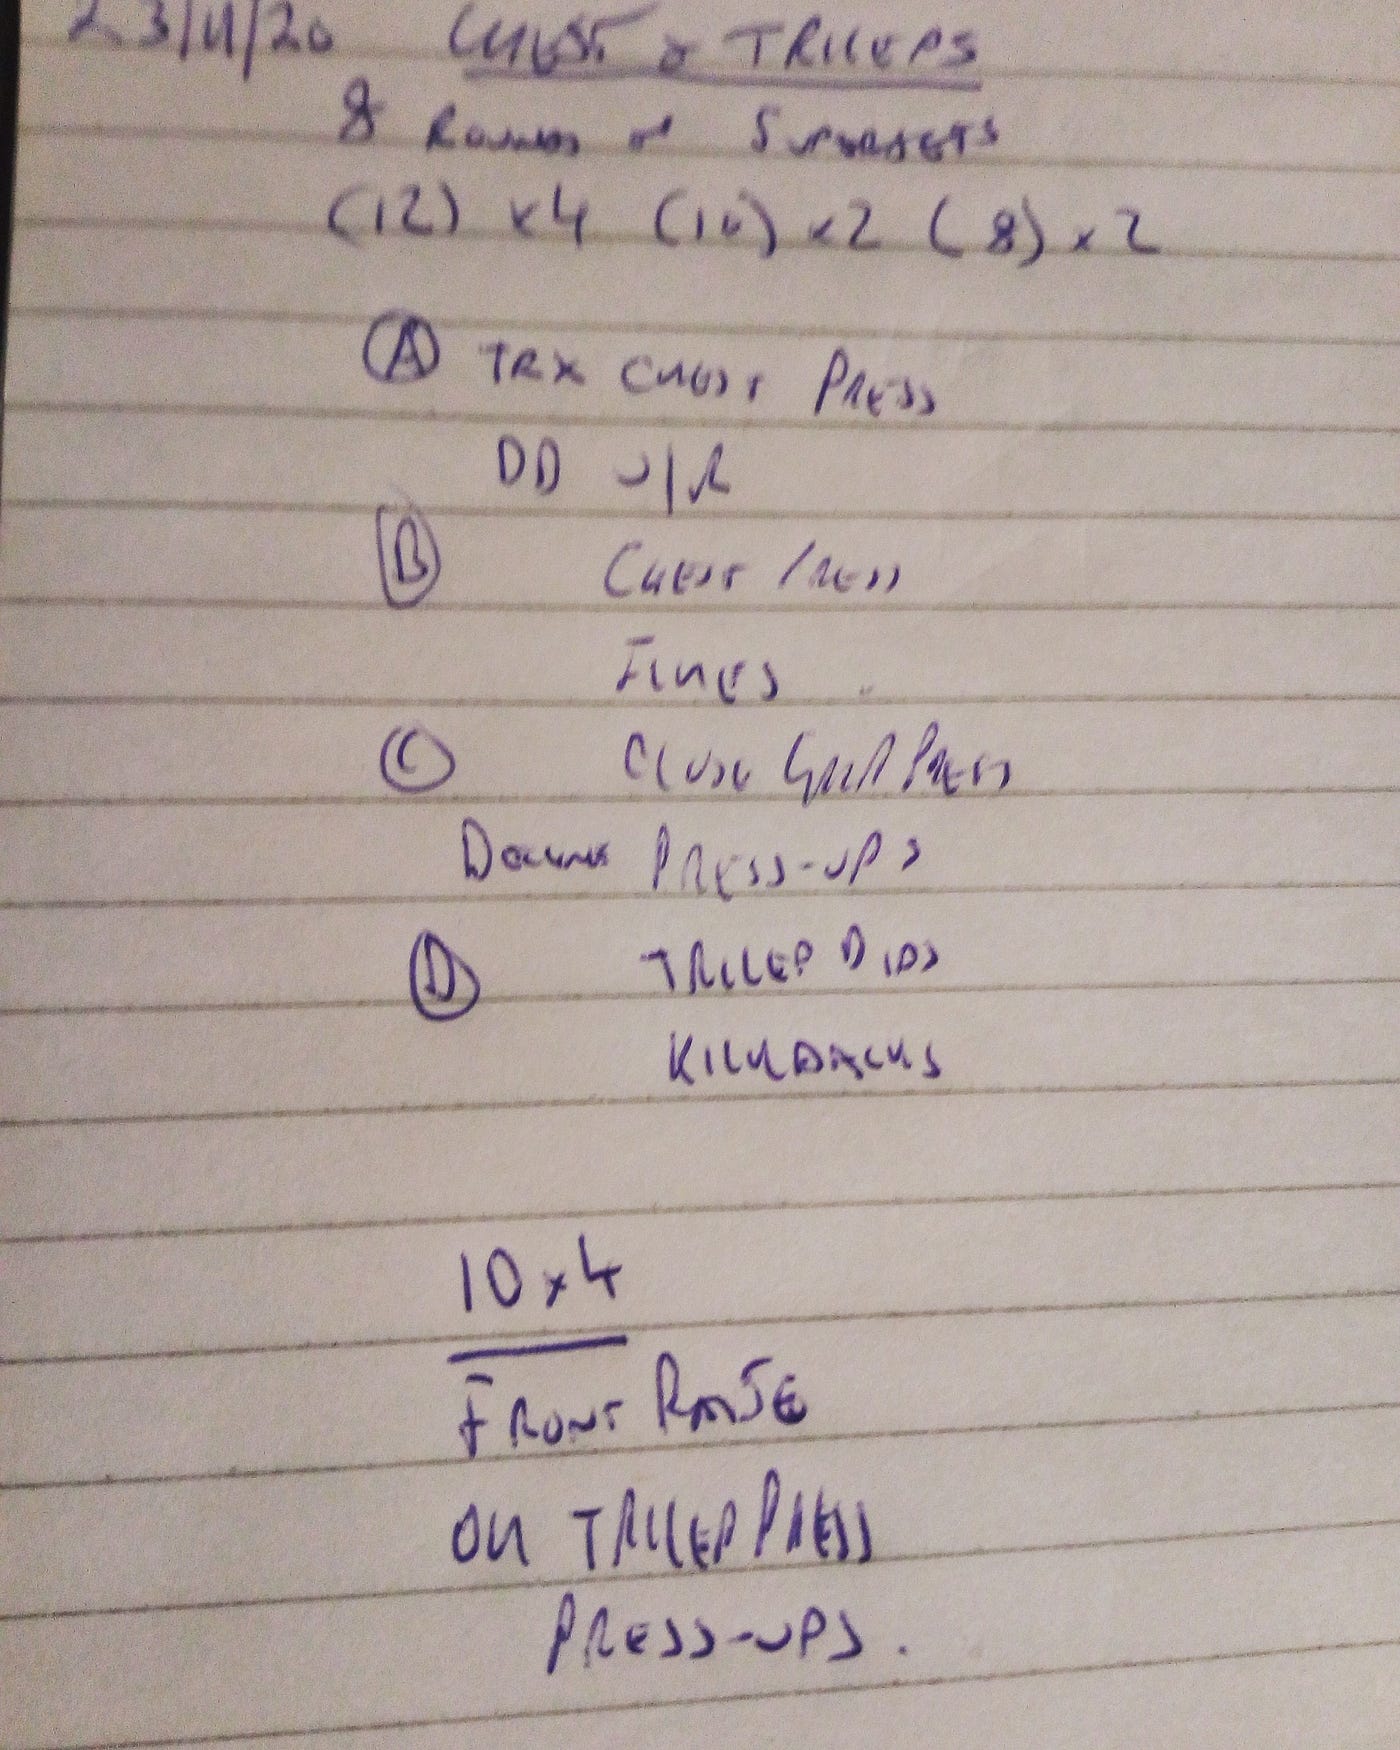 23/11/20 CHEST & TRICEPS
8 ROUNDS of SUPERSETS
(12) x4 (10) x2 (8) x2
A TRX CHEST PRESS
DB U/R
B CHEST PRESS
FLYES
C CLOSE GRIP PRESS
DECLINE PRESS-UPS
D TRICEP DIPS
KICKBACKS
10 x 4
FRONT RAISE
OH TRICEP PRESS
PRESS-UPS.